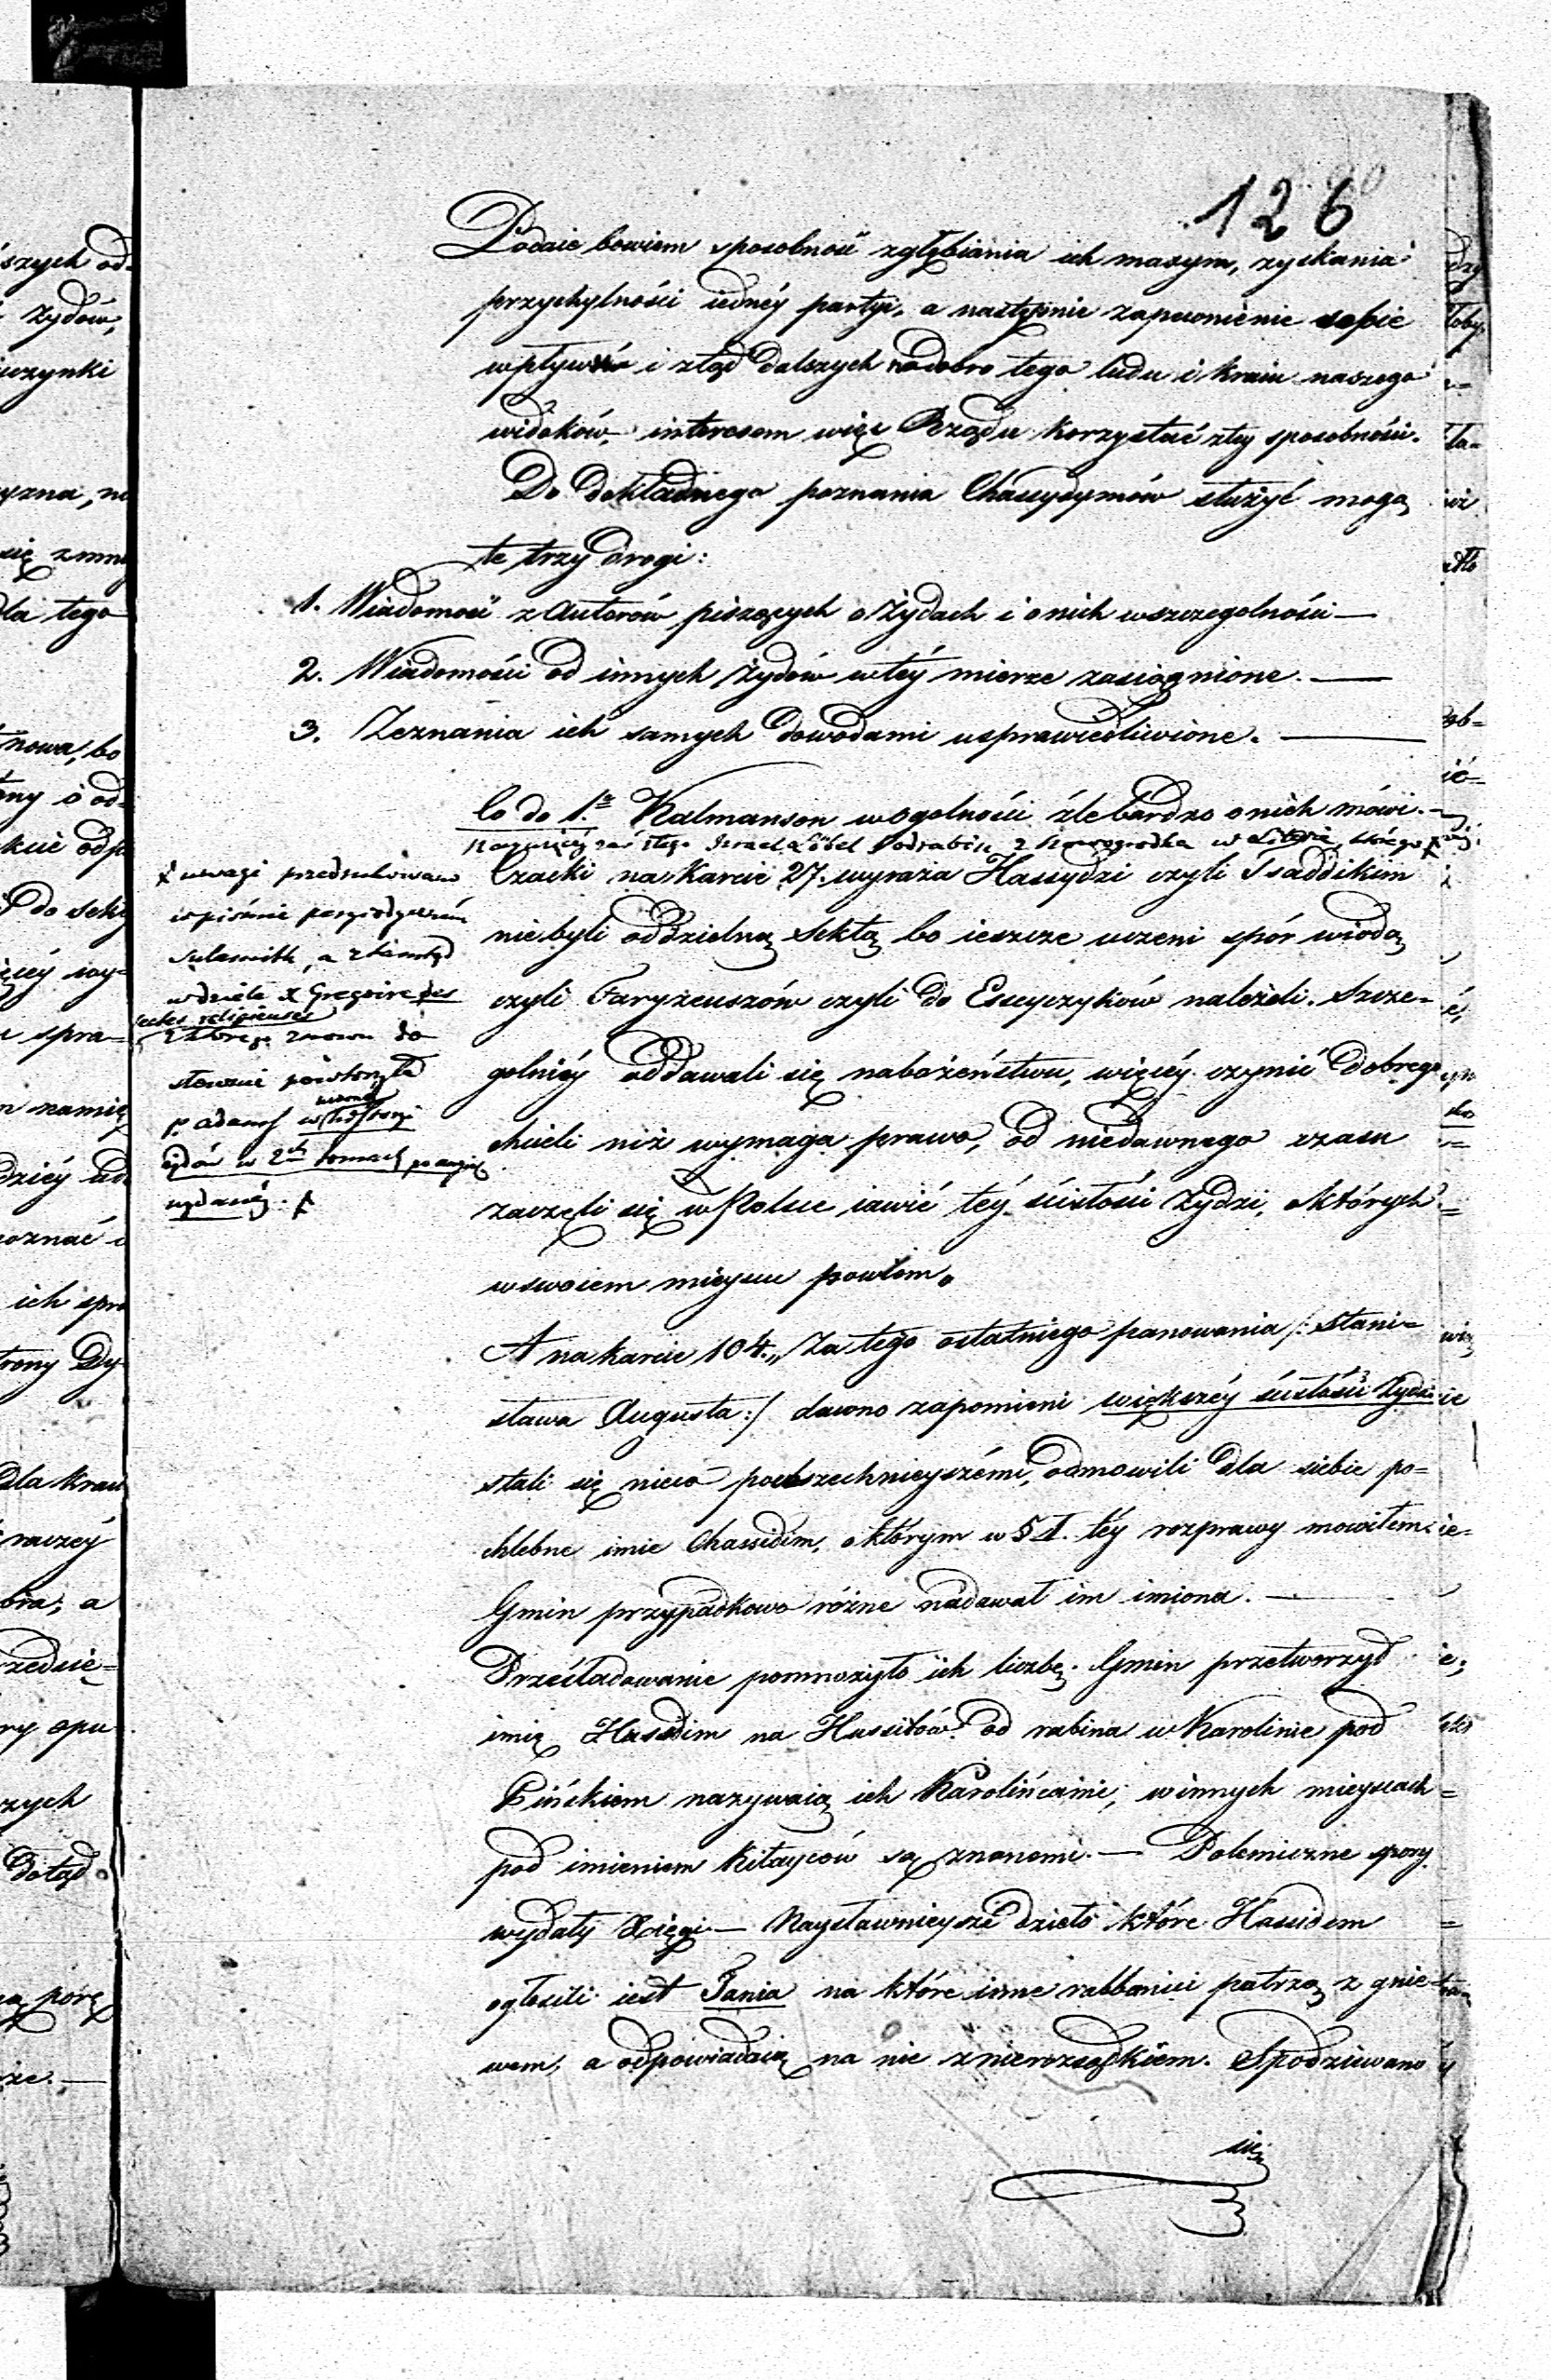 126
Podaie bowiem sposobność zgłębiania ich maxym, zyskania
przychylności iednéy partyi, a następnie zapewnienie sobie
wpływu i ztąd dalszych na dobro tego ludu i kraiu naszego
widoków, interesem więc Rządu korzystać z téy sposobności.
Do dokładnego poznania Chassydymów służyć mogą
te trzy drogi:
1. Wiadomość z Autorów piszących o Żydach i o nich w szczegolności —
2. Wiadomości od innych Żydów w téy mierze zasiągnione. —
3. Zeznania ich samych dowodami usprawiedliwione. —
Co do 1. Kalmanson w ogolności źle bardzo o nich mówi. —
Naywięcéy zaś tego Izrael Löbel Podrabin z Nowogrodka w Litwie, którego
Czacki na karcie 27. wyraża Hassydzi czyli Tsaddikim
nie byli oddzielną sektą, bo ieszcze uczeni spór wiodą
czyli Faryzeuszów czyli do Esseyczyków należeli. Szcze=
golniéy oddawali się nabożeństwu, więcéy czynić dobrego
chcieli niż wymaga prawo, od niedawnego czasu
zaczęli się w Polsce iawić téy ścisłości Żydzi, o których
w swoiem mieyscu powiem.
A na karcie 104. „Za tego ostatniego panowania /: Stani=
sława Augusta :/ dawno zapomieni większéy ścisłości Żydzi
stali się nieco powszechnieyszémi, odmowili dla siebie po=
chlebne imie Chassidim, o którym w § I. téy rozprawy mowiłem
Gmin przypadkowo różne nadawał im imiona. —
Prześladowanie pomnożyło ich liczbę. Gmin przetworzył
imię Hassidim na Hussitów, od rabina w Karolinie pod
Pińskiem nazywaią ich Karolińcami, w innych mieyscach
pod imieniem Kitayców są znanemi. — Polemiczne spory
wydały Xięgi — Naysławnieysze dzieło które Hassidem
ogłosili iest Tania na które inne rabbanici patrzą z gnie=
wem, a odpowiadaią na nie z nierozsądkiem. Spodziewano
się
uwagi przedrukowano
w piśmie peryodyczném
Sulamith, a z tamtąd
w dziele X Gregoire des
sectes religieuses
z którego znowu do
słownie powtorzyła
p. Adams w historyi
żydów w 2ch tomach po angiel
wydanéj.